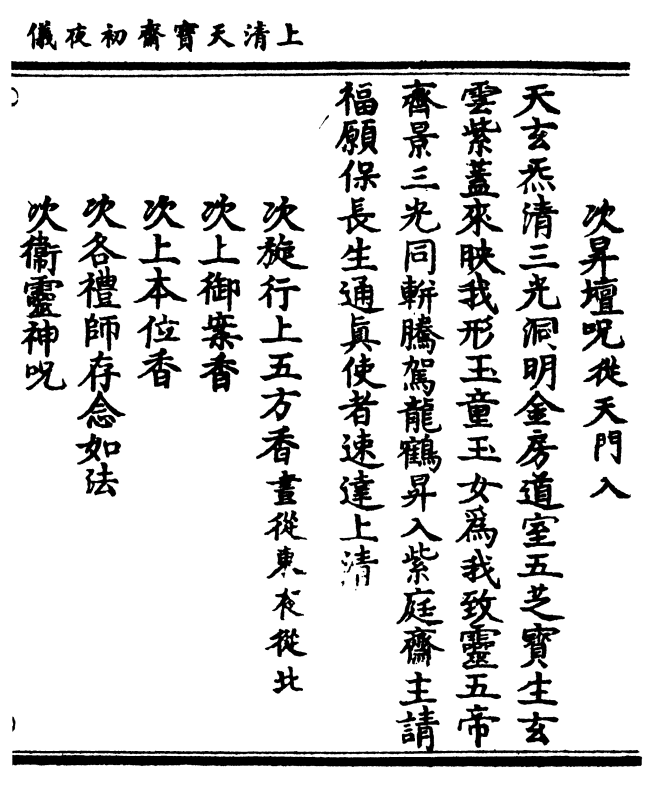 上清天寶齋初夜儀
次昇壇呪從天門入
天玄炁清三光洞明金房道室五芝寶生玄
雲紫蓋來映我形玉童玉女爲我致靈五帝
齊景三光同軿騰駕龍鶴昇入紫庭齋主請
福願保長生通眞使者速達上清
次旋行上五方香晝從東夜從北
次上御案香
次上本位香
次各禮師存念如法
次衞靈神呪